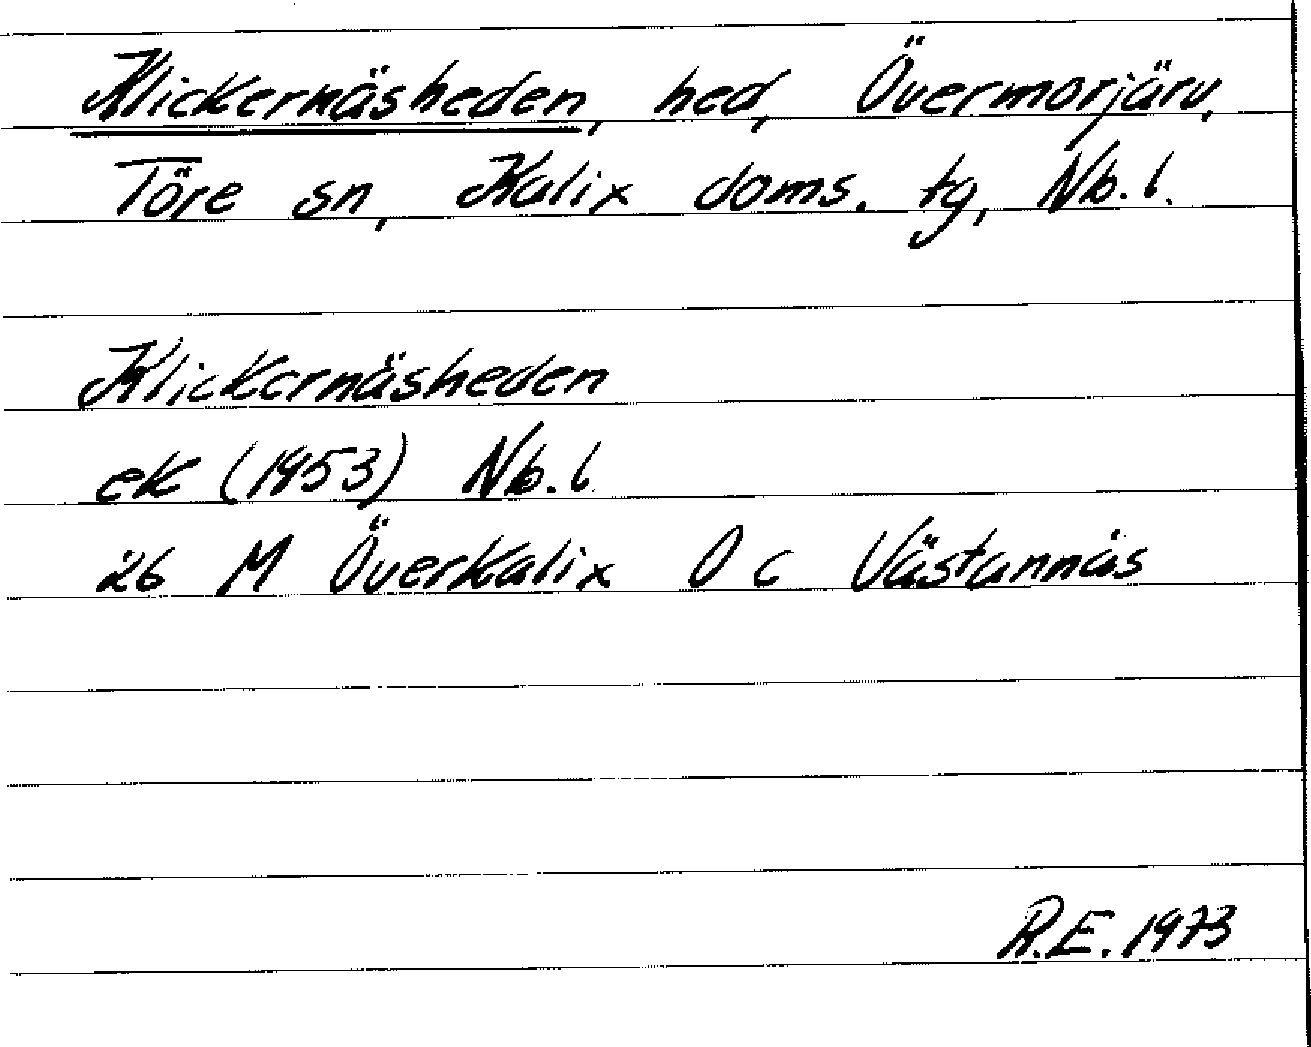 Klickernäsheden, hed, Övermorjärv,
Töre sn, Kalix doms. tg, Nb. l.
Klickernäsheden
ek (1953) Nb. l
26 M Överkalix O c Västannäs
R.E. 1973